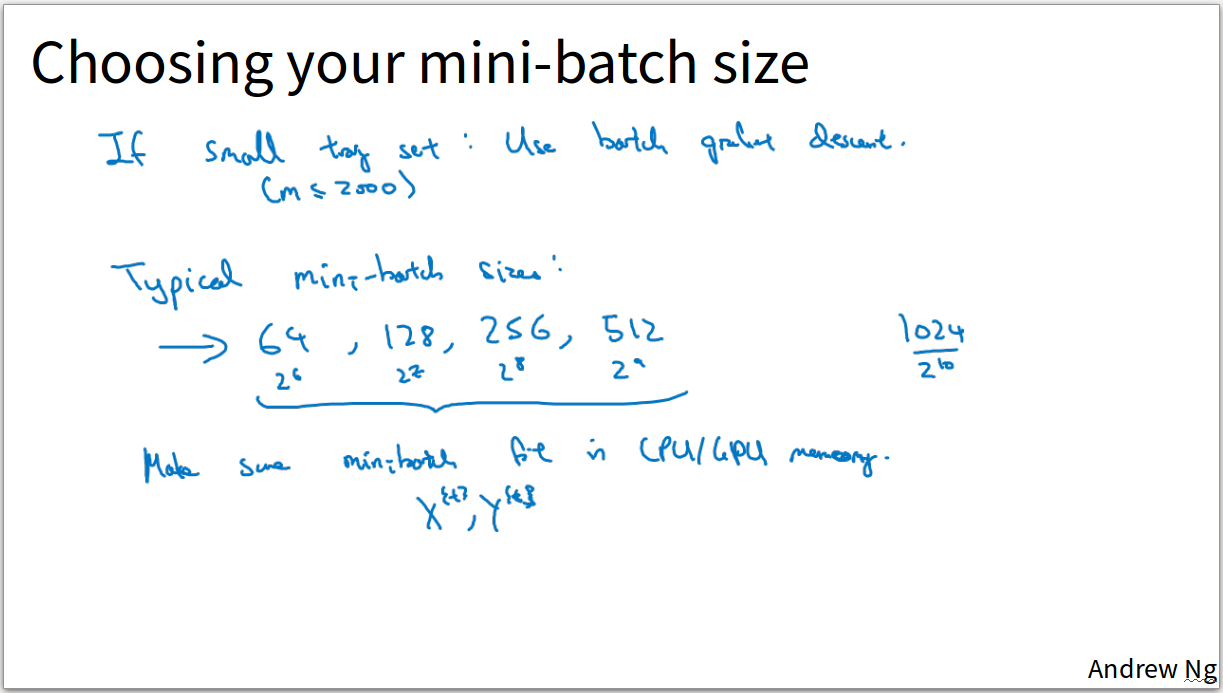 Choosing your mini-batch size
If small trag set : Use batch gradient descent.
(m ≤ 2000)
Typical mini-batch sizes:
→ 64 , 128, 256, 512 1024
2⁶ 2⁷ 2⁸ 2⁹ 2¹⁰
Make sure minibatch fit in CPU/GPU memory.
X^{t}, Y^{t}
Andrew Ng